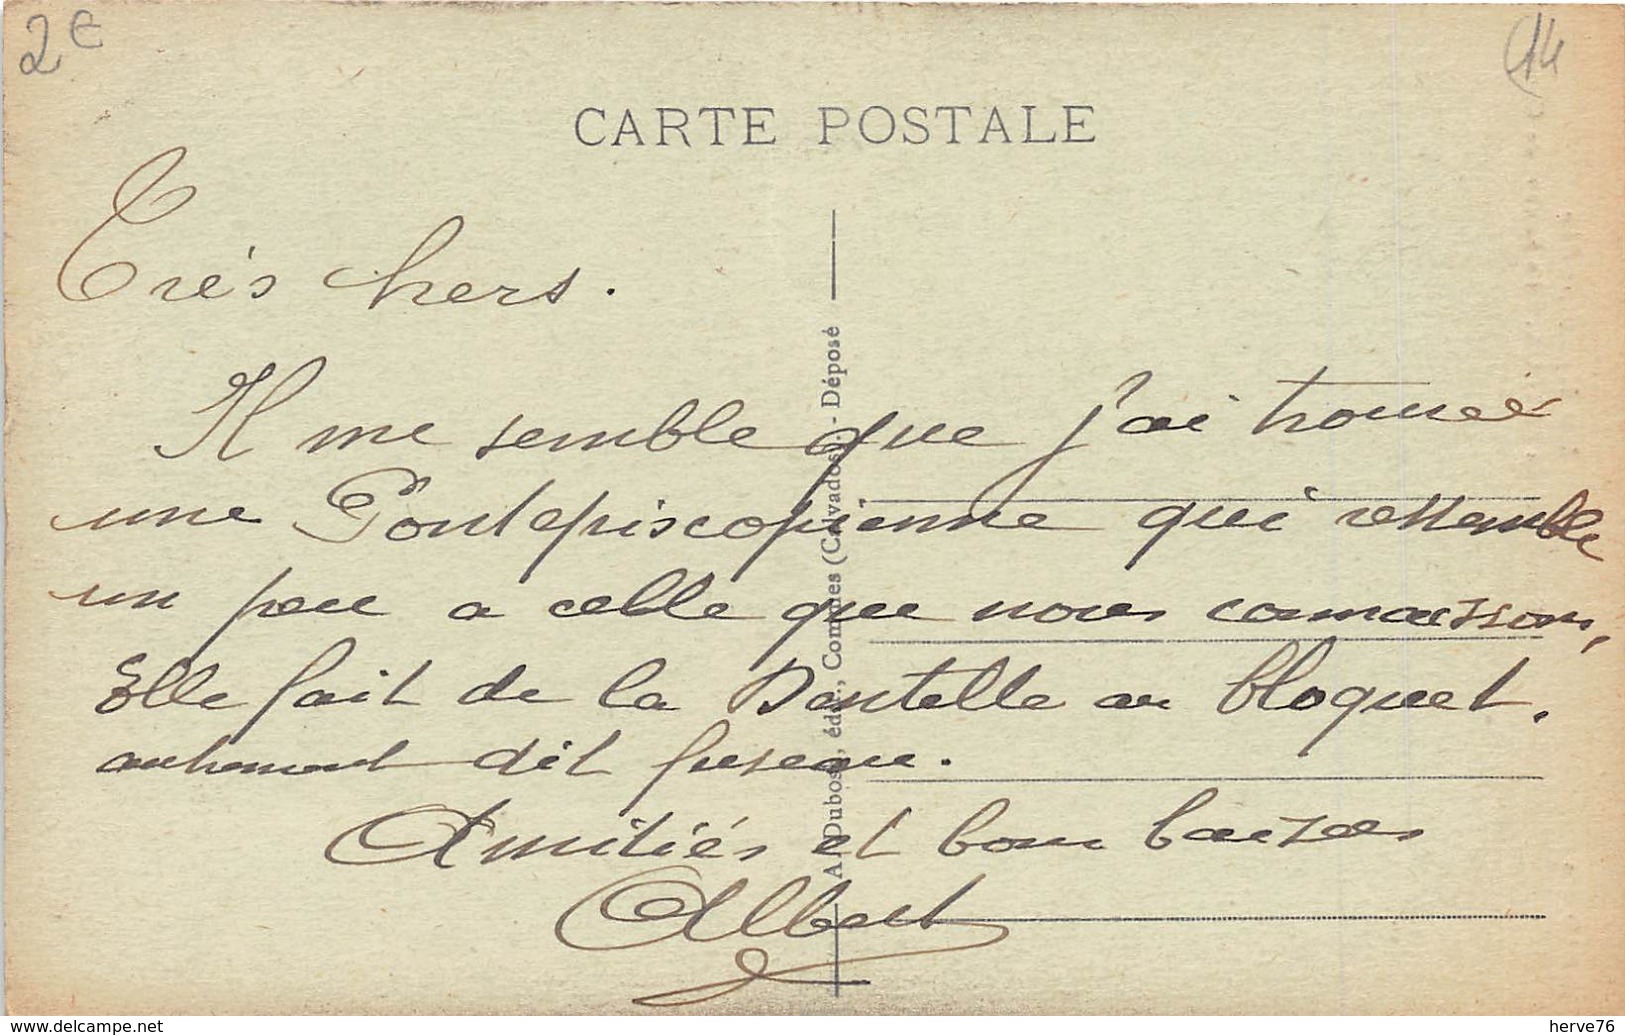 2€
14
CARTE POSTALE
Très chers.
Il me semble que j'ai trouvée
une Pontepiscopienne qui ressemble
un peu a celle que nous connaissons,
Elle fait de la Dentelle au bloquet.
autrement dit fuseau.
Amitiés et bons baisers
Albert
A. Dubosq, édit., Commes (Calvados). - Déposé
www.delcampe.net
herve76